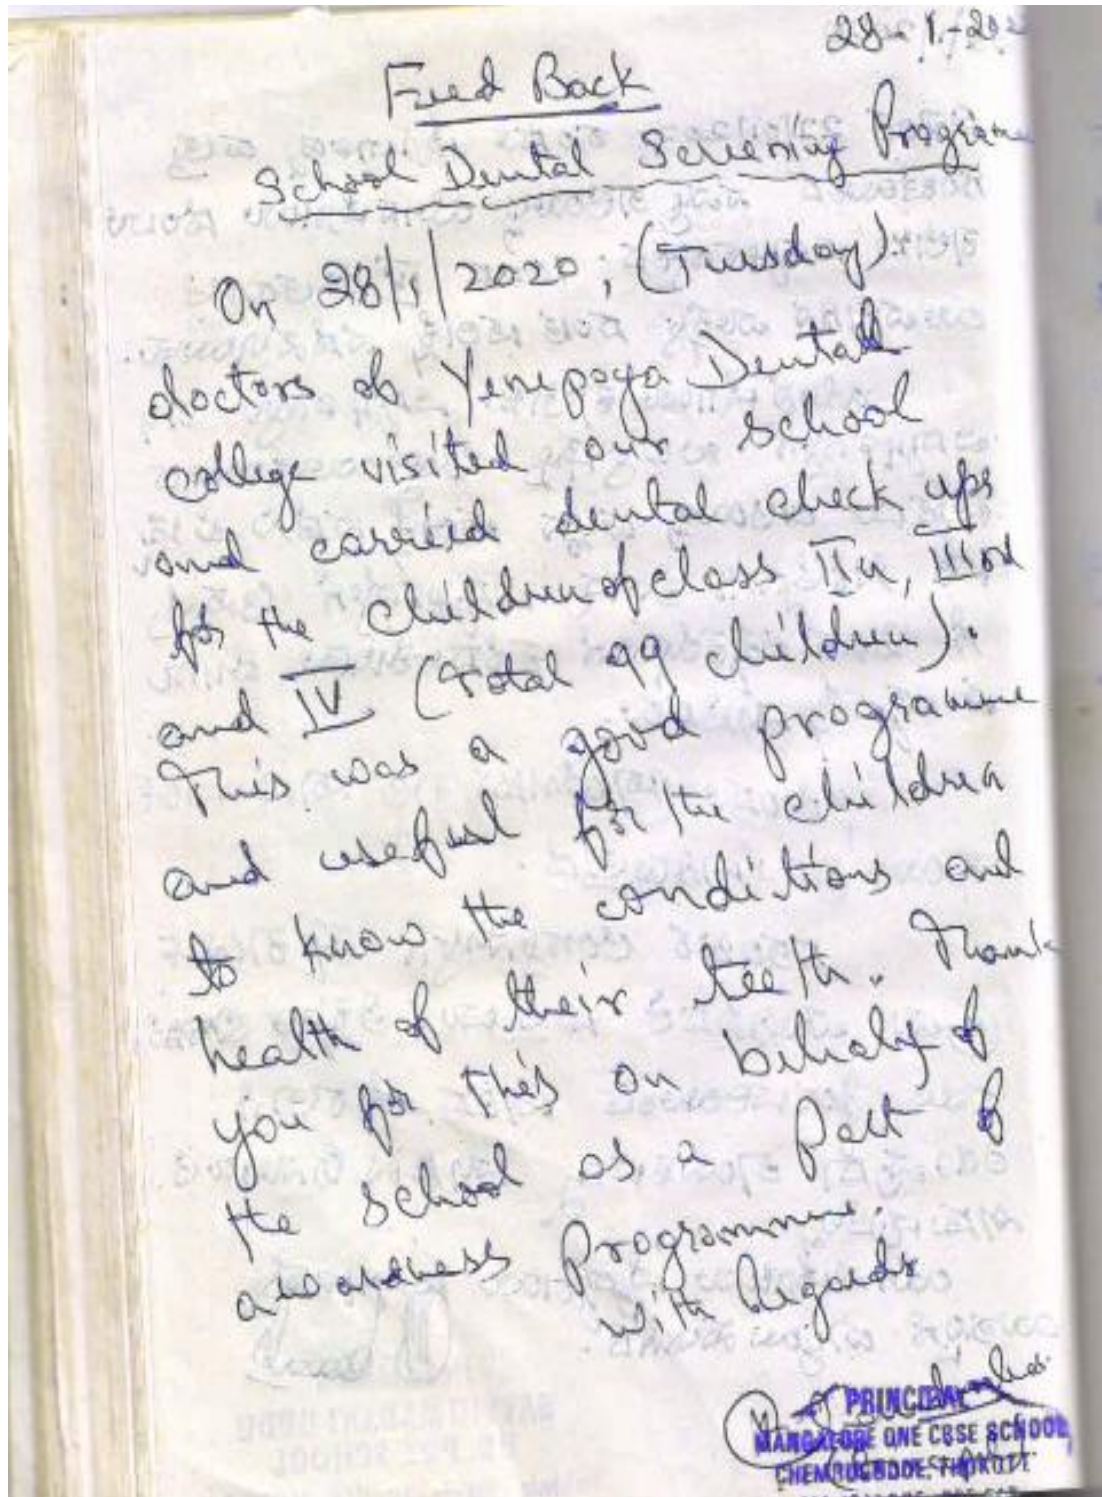 28-1-20
Feed Back
School Dental Screening Programe
On 28/1/2020, (Tuesday)
doctors of Yenepoya Dental
college visited our school
and carried dental check ups
for the children of class II, IIIrd
and IV (Total 99 children).
This was a good programme
and useful for the children
to know the conditions and
health of their teeth. Thank
you for this on behalf of
the school as a part of
awareness Programme.
with Regards
PRINCIPAL
MANGALORE ONE CBSE SCHOOL